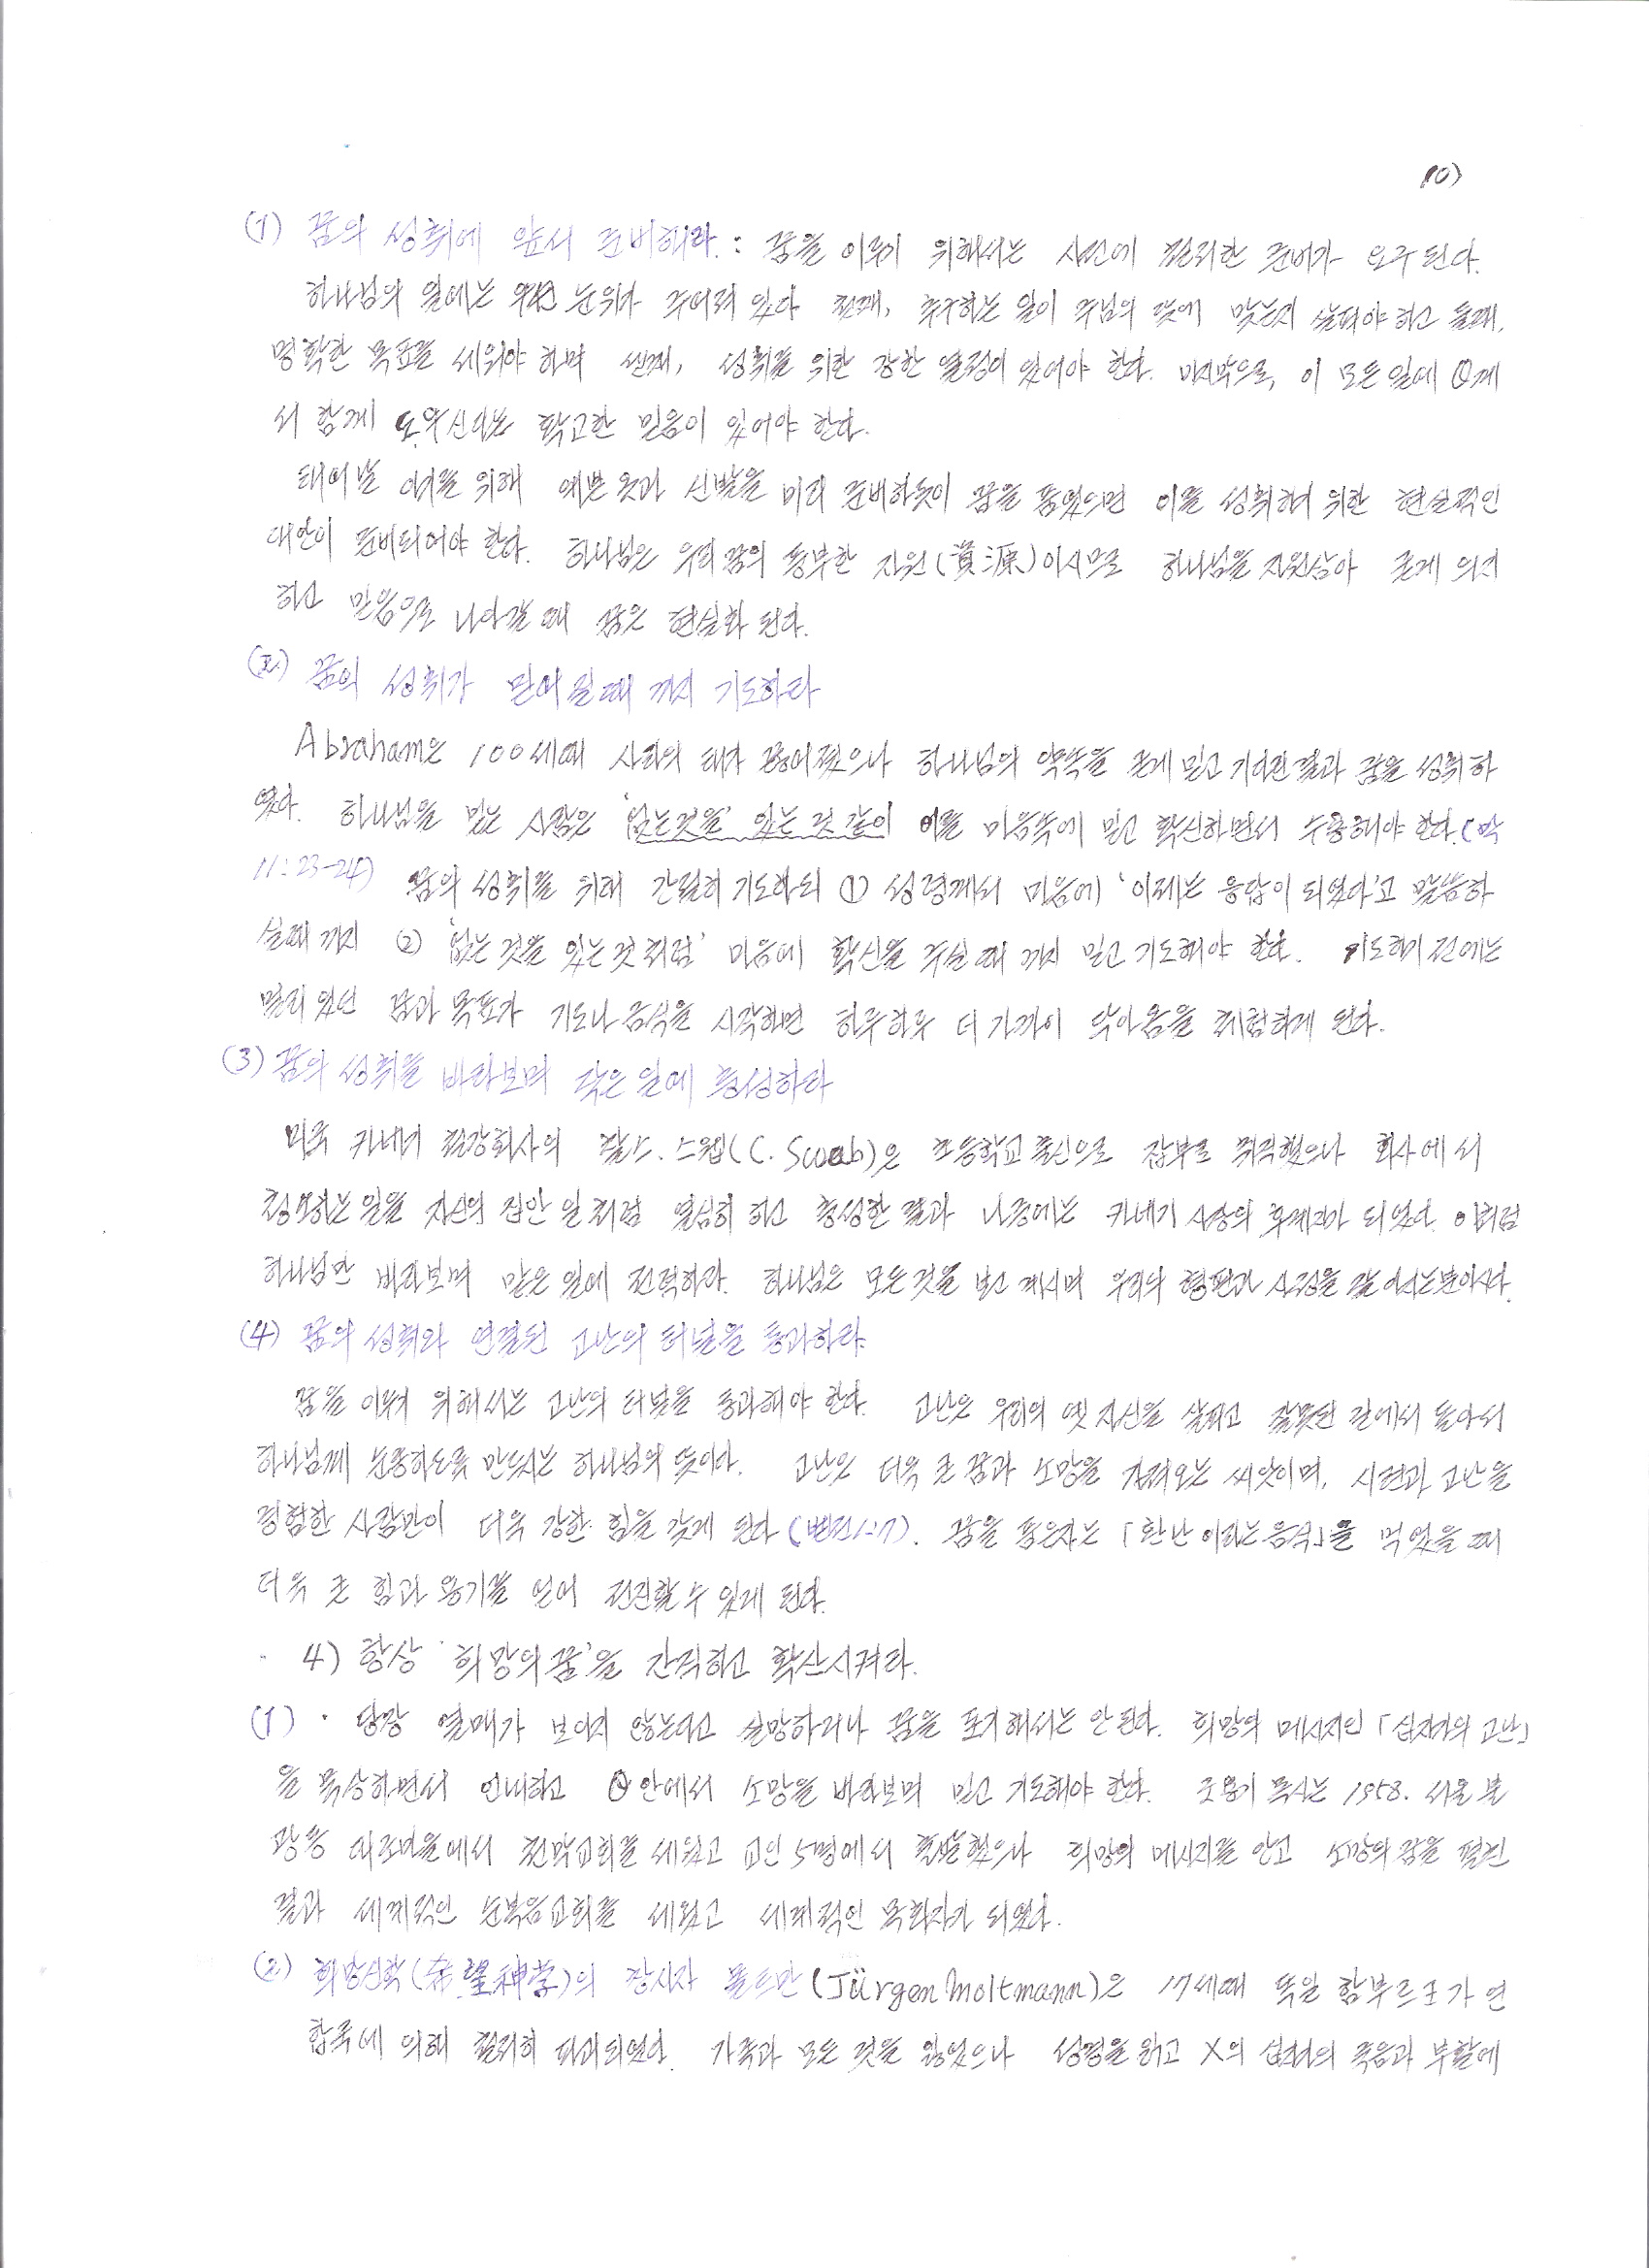 10)
(1) 꿈의 성취에 앞서 준비해라. : 꿈을 이루기 위해서는 사전에 철저한 준비가 요구된다.
하나님의 일에는 우선 순위가 주어져 있다 첫째, 추구하는 일이 주님의 뜻에 맞는지 살펴야 하고 둘째,
명확한 목표를 세워야 하며 셋째, 성취를 위한 강한 열정이 있어야 한다. 마지막으로, 이 모든 일에 께
서 함께 도우신다는 확고한 믿음이 있어야 한다.
태어날 위해 예쁜 옷과 신발을 미리 준비하듯이 꿈을 품었으면 이를 성취하기 위한 현실적인
대안이 준비되어야 한다. 하나님은 우리 꿈의 풍부한 자원(資源)이시므로 하나님을 자원삼아 굳게 의지
하고 믿음으로 나아갈 때 꿈은 현실화 된다.
(2) 꿈의 성취가 믿어질때 까지 기도하라
Abraham은 100세때 사라의 태가 끊어졌으나 하나님의 약속을 굳게 믿고 기다린 결과 꿈을 성취하
였다. 하나님을 믿는 사람은 '없는것을' 있는 것 같이 이를 마음속에 믿고 확신하면서 수용해야 한다.(막
11:23-24) 꿈의 성취를 위해 간절히 기도하되 ① 성령께서 마음에 '이제는 응답이 되었다'고 말씀하
실때 까지 ② '없는 것을 있는것 처럼' 마음에 확신을 주실 때 까지 믿고 기도해야 한다. 기도하기 전에는
멀리 있던 꿈과 목표가 기도나 금식을 시작하면 하루하루 더 가까이 닥아옴을 체험하게 된다.
(3) 꿈의 성취를 바라보며 작은 일에 충성하라
미국 카네기 철강회사의 찰스.스웹(C. Scwab)은 초등학교 출신으로 잡부로 취직했으나 회사에서
청소하는 일을 자신의 집안 일 처럼 열심히 하고 충성한 결과 나중에는 카네기 사장의 후계자가 되었다. 이처럼
하나님만 바라보며 맡은 일에 전력하라. 하나님은 모든것을 보고 계시며 우리의 형편과 사정을 잘 아시는분이시다.
(4) 꿈의 성취와 연결된 고난의 터널을 통과하라.
꿈을 이루기 위해서는 고난의 터널을 통과해야 한다. 고난은 우리의 옛 자신을 살피고 잘못된 길에서 돌아서
하나님께 순종하도록 만드시는 하나님의 뜻이다. 고난은 더욱 큰 꿈과 소망을 가져오는 씨앗이며, 시련과 고난을
경험한 사람만이 더욱 강한 힘을 갖게 된다 (벧전1:7). 꿈을 품은자는 「환난이라는 음식」을 먹었을 때
더욱 큰 힘과 용기를 얻어 전진할수 있게 된다.
4) 항상 '희망의 꿈'을 간직하고 확산시켜라.
(1) · 당장 열매가 보이지 않는다고 실망하거나 꿈을 포기해서는 안된다. 희망의 메시지인 「십자가의 고난」
을 묵상하면서 인내하고 안에서 소망을 바라보며 믿고 기도해야 한다. 조용기 목사는 1958. 서울 불
광동 대조마을에서 천막교회를 세웠고 교인 5명에서 출발했으나 희망의 메시지를 안고 소망의 꿈을 펼친
결과 세계적인 순복음교회를 세웠고 세계적인 목회자가 되었다.
(2) 희망신학(希望神学)의 창시자 몰트만(Jürgen Moltmann)은 17세때 독일 함부르크가 연
합국에 의해 철저히 파괴되었다. 가족과 모든 것을 잃었으나 성경을 읽고 X의 십자가의 죽음과 부활에